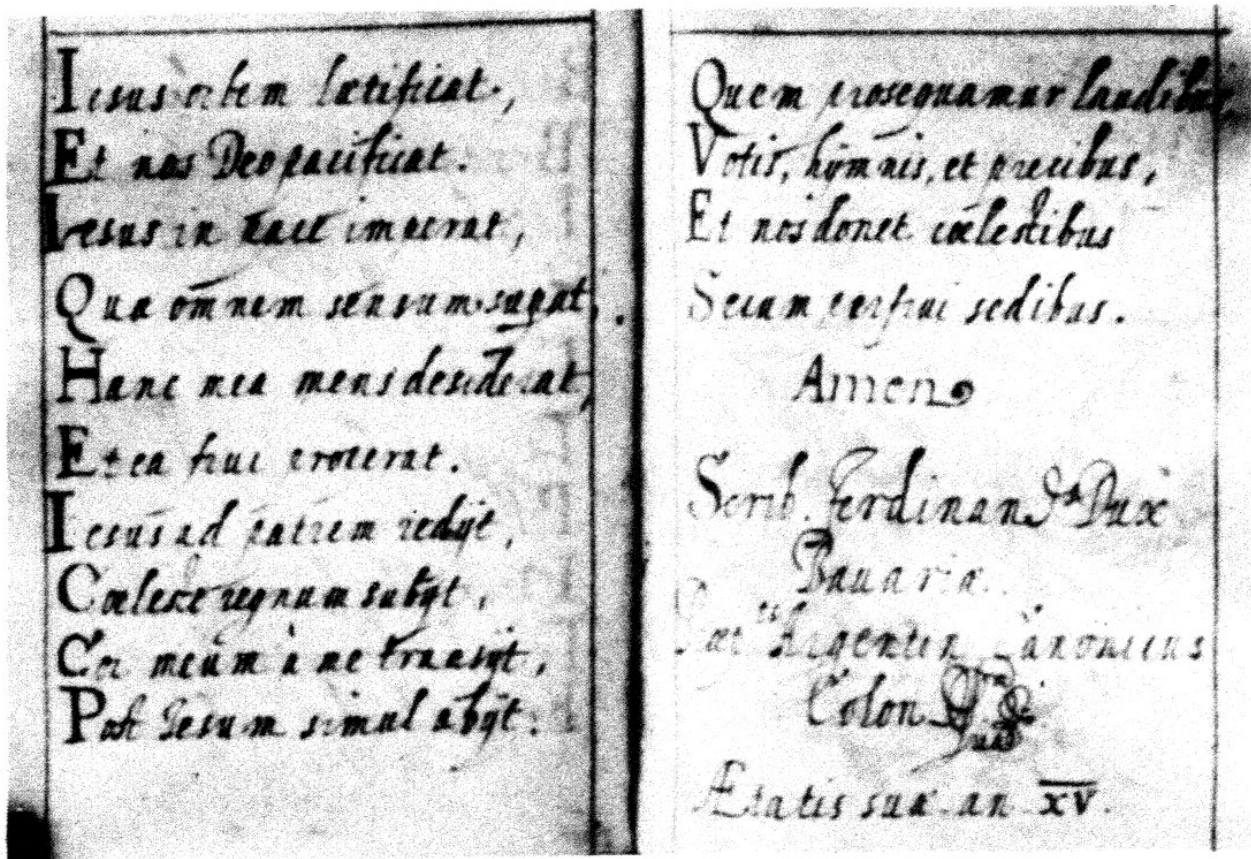 Iesus orbem lætificat,
Et nos Deo pacificat.
Iesus in pace imperat,
Quæ omnem sensum superat,
Hanc mea mens desiderat,
Et ea frui properat.
Iesus ad patrem redijt,
Cœleste regnum subijt,
Cor meum à me transijt,
Post Iesum simul abijt.
Quem prosequamur laudibus,
Votis, hymnis, et precibus,
Et nos donet cœlestibus
Secum perfrui sedibus.
Amen
Scrib. Ferdinand Dux
Bauariæ.
Argentin Canonicus
Colon
Ætatis suæ an XV.